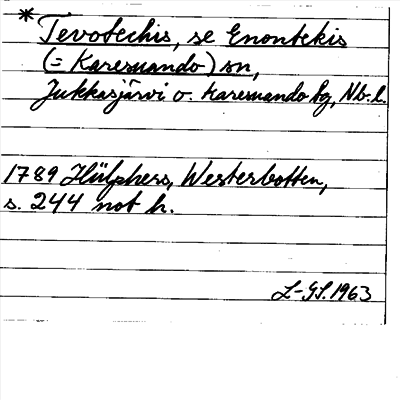 * Tevotechis, se Enontekis
(= Karesuando) sn,
Jukkasjärvi o. Karesuando tg, Nb. l.
1789 Hülphers, Westerbotten,
s. 244 not h.
L-GS. 1963